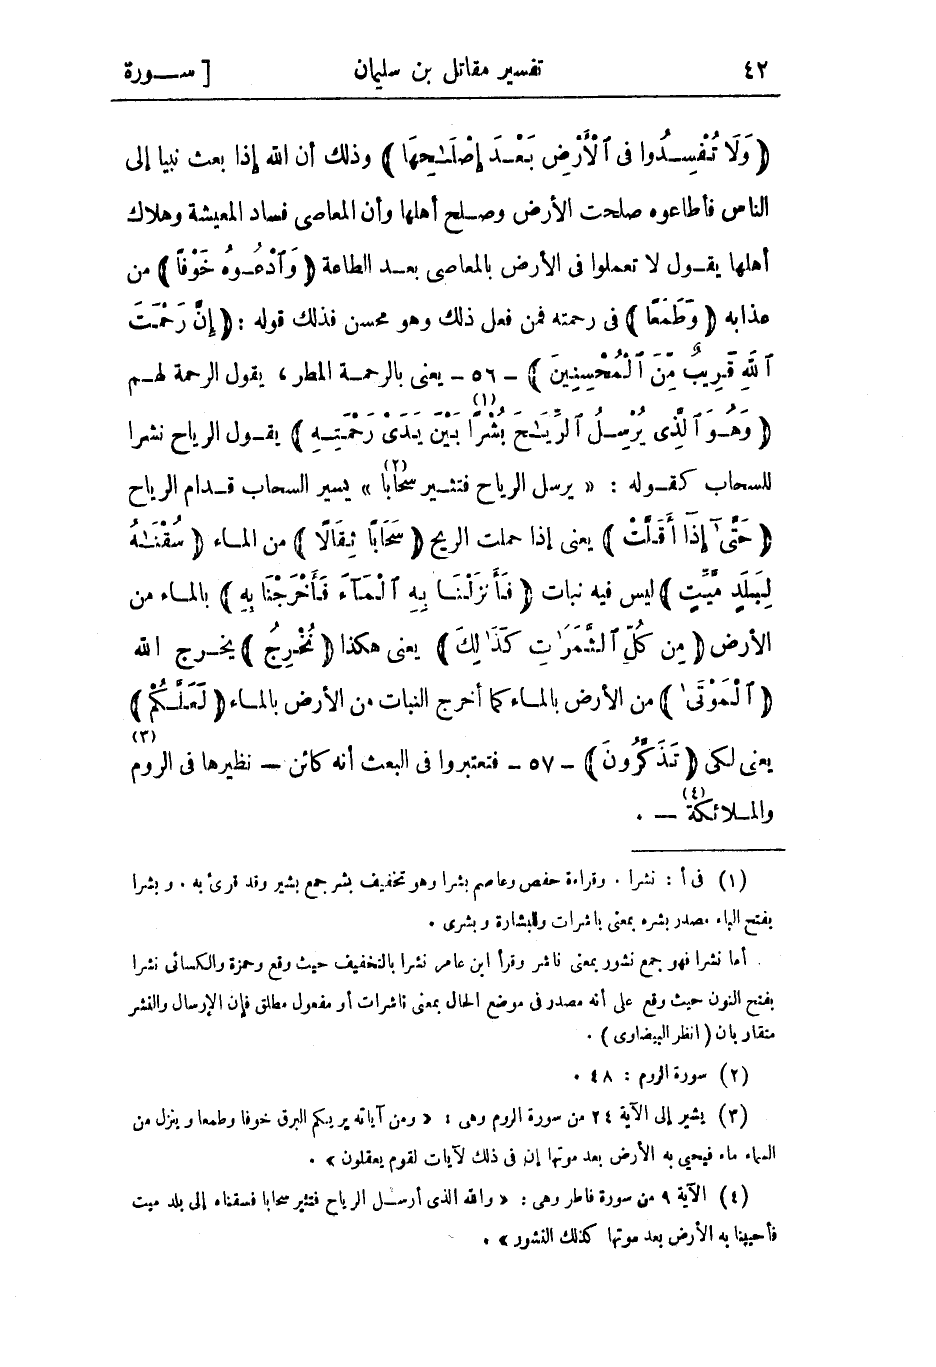 ٤٢ تفسير مقاتل بن سليمان [ سورة
﴿ وَلَا تُفْسِدُوا فِى ٱلْأَرْضِ بَعْدَ إِصْلَـٰحِهَا ﴾ وذلك أن الله إذا بعث نبيا إلى
الناس فأطاعوه صلحت الأرض وصلح أهلها وأن المعاصى فساد المعيشة وهلاك
أهلها يقول لا تعملوا فى الأرض بالمعاصى بعد الطاعة ﴿ وَٱدْعُوهُ خَوْفًا ﴾ من
عذابه ﴿ وَطَمَعًا ﴾ فى رحمته فمن فعل ذلك وهو محسن فذلك قوله : ﴿ إِنَّ رَحْمَتَ
ٱللَّهِ قَرِيبٌ مِّنَ ٱلْمُحْسِنِينَ ﴾ - ٥٦ - يعنى بالرحمة المطر ، يقول الرحمة لهم
﴿ وَهُوَ ٱلَّذِى يُرْسِلُ ٱلرِّيَـٰحَ بُشْرًا (١) بَيْنَ يَدَىْ رَحْمَتِهِ ﴾ يقول الرياح نشرا
للسحاب كقوله : « يرسل الرياح فتثير سحابا (٢) » يسير السحاب قدام الرياح
﴿ حَتَّىٰٓ إِذَآ أَقَلَّتْ ﴾ يعنى إذا حملت الريح ﴿ سَحَابًا ثِقَالًا ﴾ من الماء ﴿ سُقْنَـٰهُ
لِبَلَدٍ مَّيِّتٍ ﴾ ليس فيه نبات ﴿ فَأَنزَلْنَا بِهِ ٱلْمَآءَ فَأَخْرَجْنَا بِهِ ﴾ بالماء من
الأرض ﴿ مِن كُلِّ ٱلثَّمَرَٰتِ كَذَٰلِكَ ﴾ يعنى هكذا ﴿ نُخْرِجُ ﴾ يخرج الله
﴿ ٱلْمَوْتَىٰ ﴾ من الأرض بالماء كما أخرج النبات من الأرض بالماء ﴿ لَعَلَّكُمْ ﴾
يعنى لكى ﴿ تَذَكَّرُونَ ﴾ - ٥٧ - فتعتبروا فى البعث أنه كائن — نظيرها فى الروم (٣)
والملائكة (٤) — .
(١) فى أ : نشرا . وقراءة حفص وعاصم بشرا وهو تخفيف بشر جمع بشير وقد قرئ به . وبشرا
بفتح الباء مصدر بشره بمعنى باشرات والبشارة وبشرى .
أما نشرا فهو جمع نشور بمعنى ناشر وقرأ ابن عامر نشرا بالتخفيف حيث وقع وحمزة والكسائى نشرا
بفتح النون حيث وقع على أنه مصدر فى موضع الحال بمعنى ناشرات أو مفعول مطلق فإن الإرسال والنشر
متقاربان ( انظر البيضاوى ) .
(٢) سورة الروم : ٤٨ .
(٣) يشير إلى الآية ٢٤ من سورة الروم وهى : « ومن آياته يريكم البرق خوفا وطمعا وينزل من
السماء ماء فيحيى به الأرض بعد موتها إن فى ذلك لآيات لقوم يعقلون » .
(٤) الآية ٩ من سورة فاطر وهى : « والله الذى أرسل الرياح فتثير سحابا فسقناه إلى بلد ميت
فأحيينا به الأرض بعد موتها كذلك النشور » .